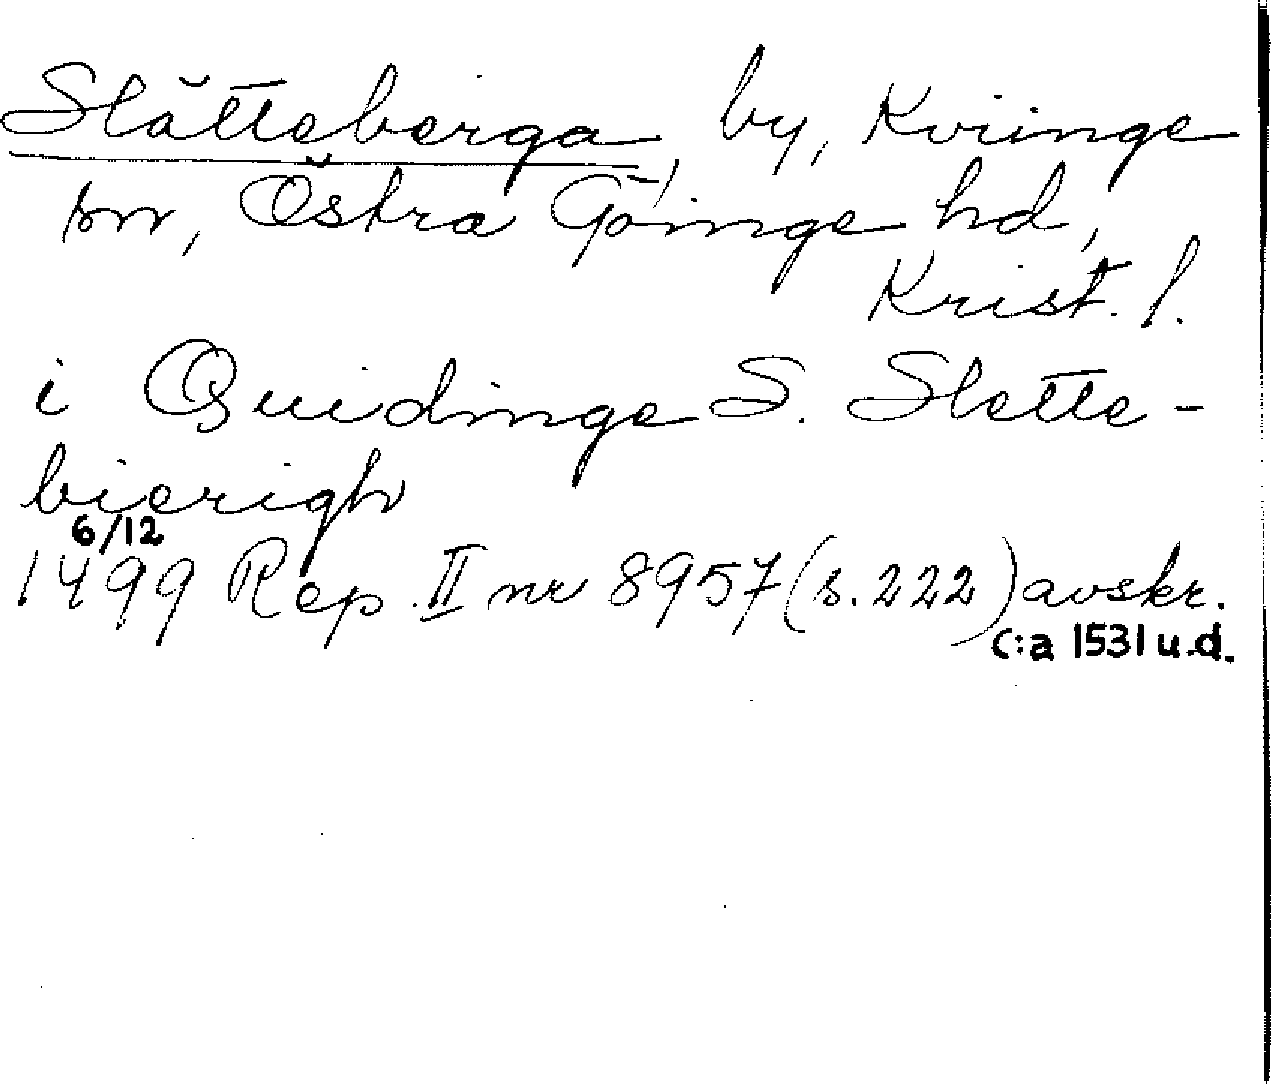 Slätteberga, by, Kviinge
sn, Östra Göinge hd,
Krist. l.
i Quidinge S. Slette-
bierigh
6/12
1499 Rep. II nr 8957 (s. 222) avskr.
c:a 1531 u.d.